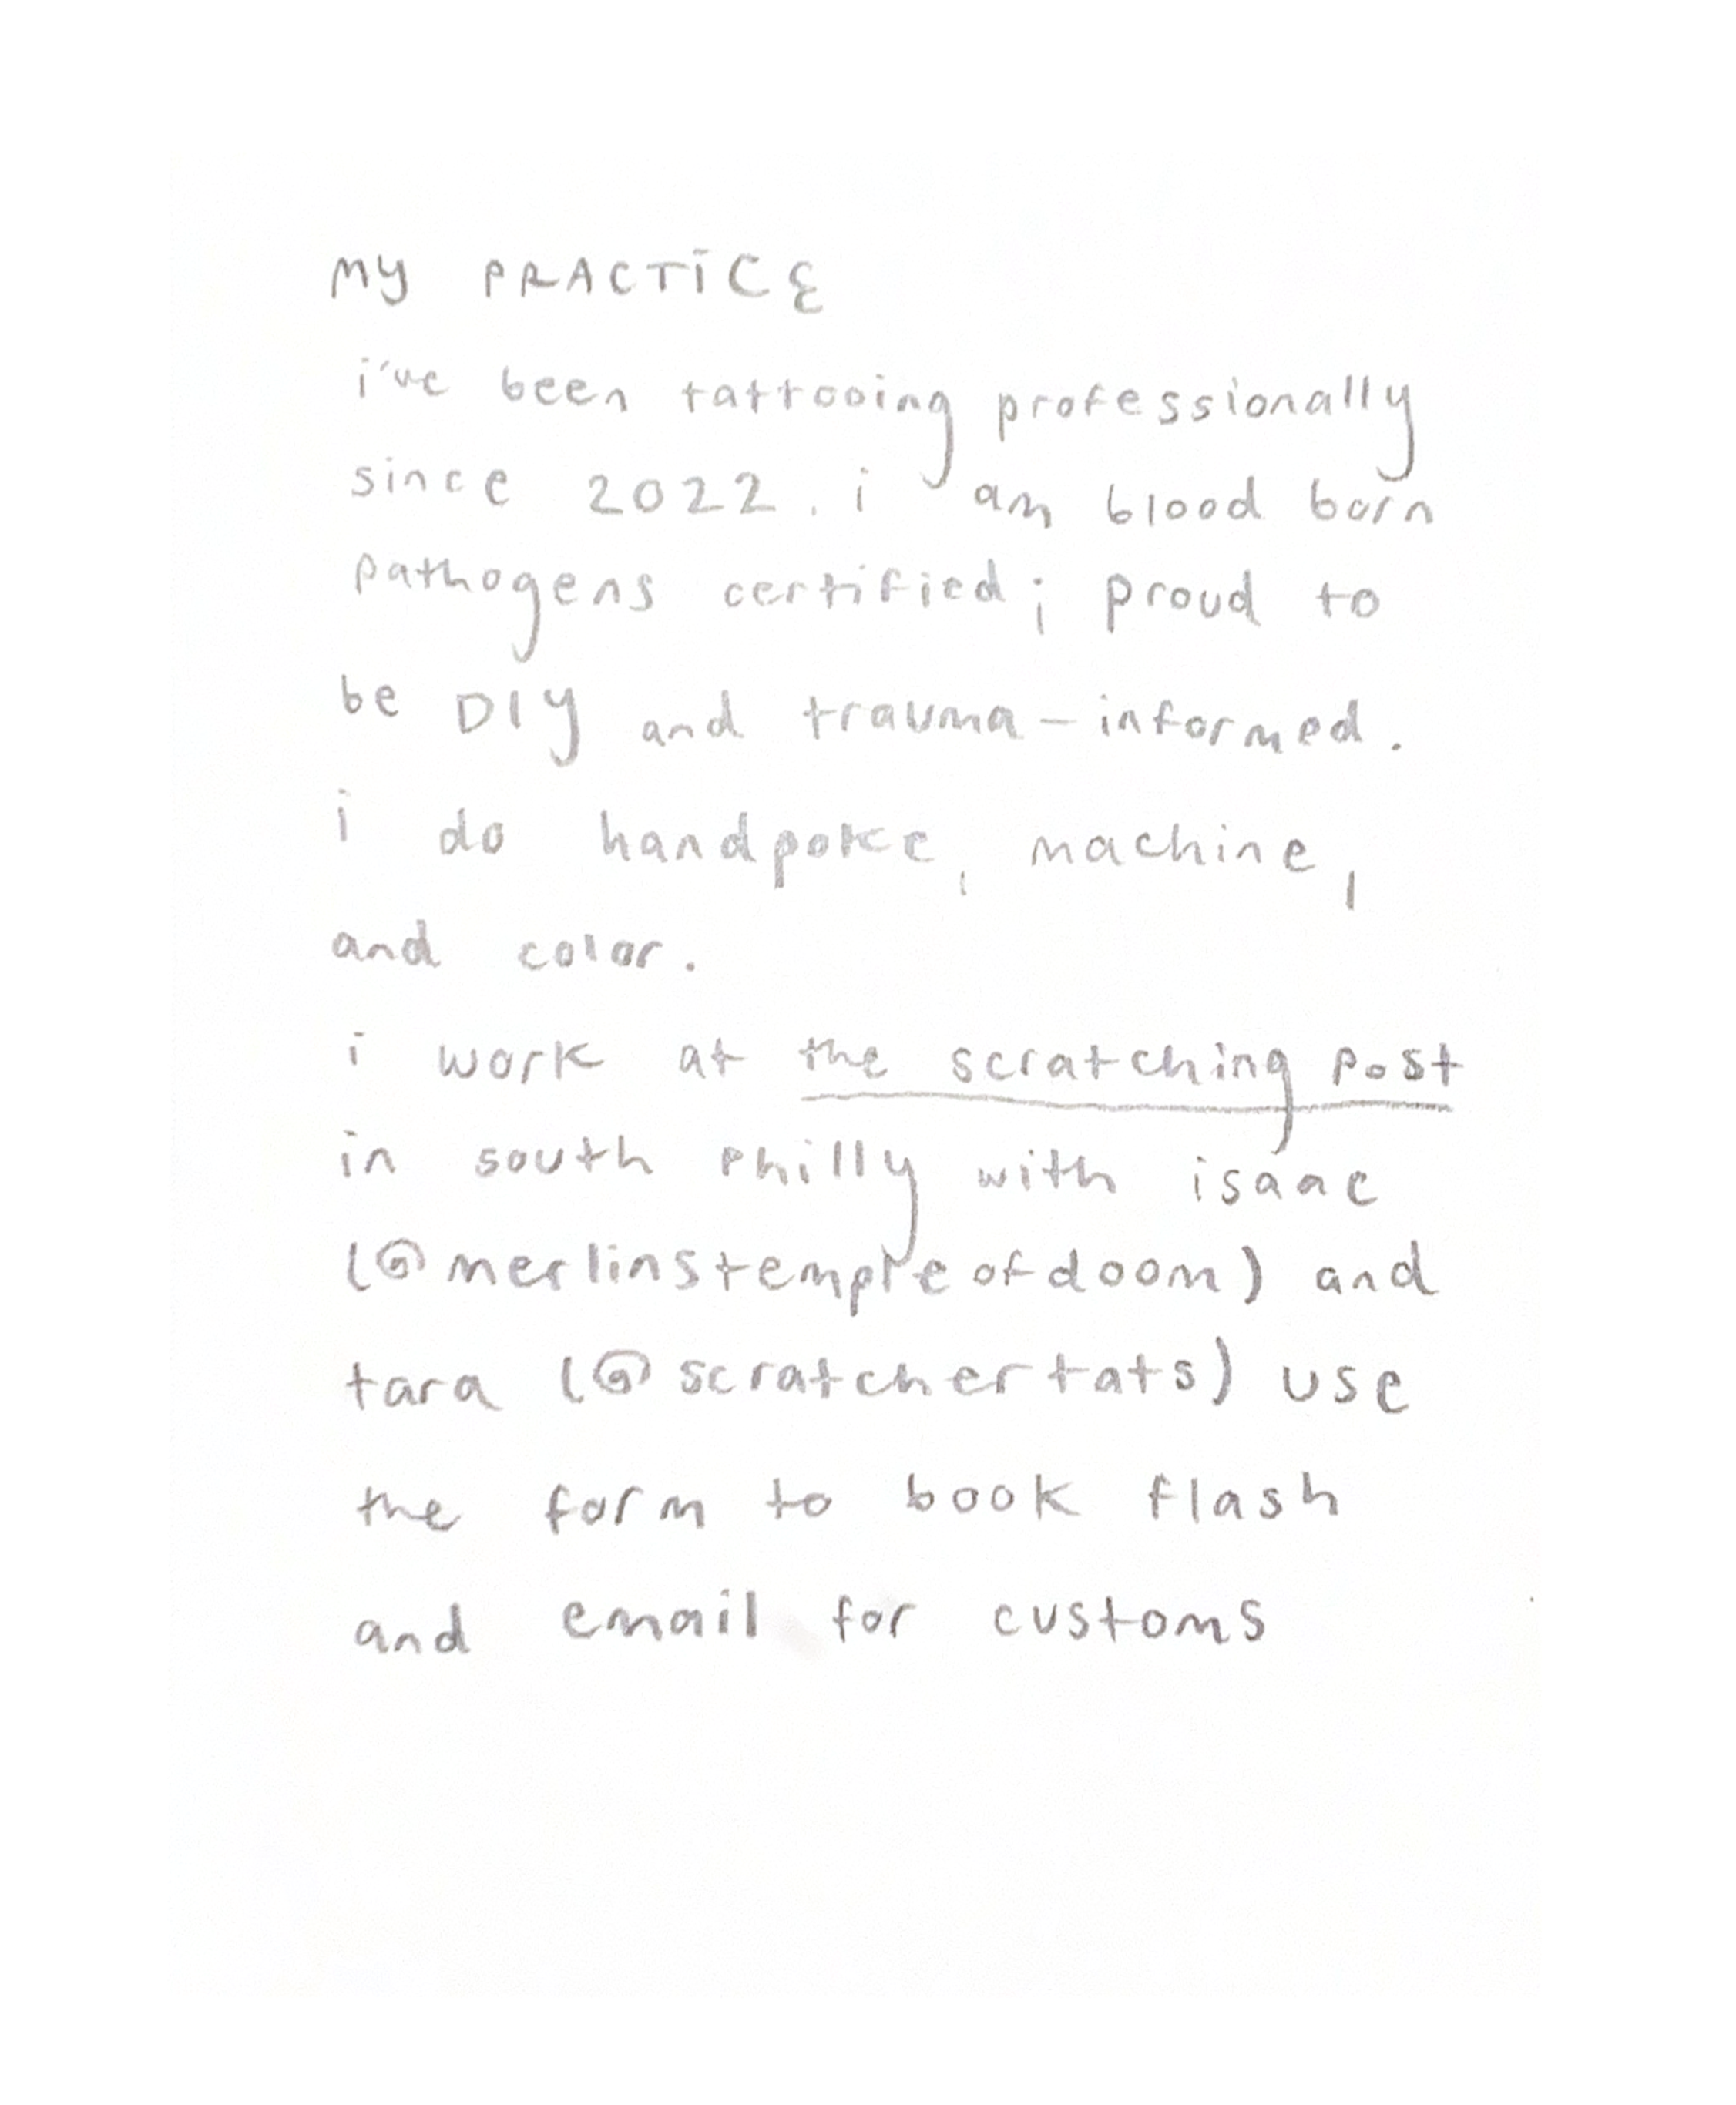 MY PRACTICE
i've been tattooing professionally
since 2022. i am blood born
pathogens certified; proud to
be DIY and trauma-informed.
i do handpoke, machine,
and color.
i work at the scratching post
in south philly with isaac
(@merlinstempleofdoom) and
tara (@scratchertats) use
the form to book flash
and email for customs